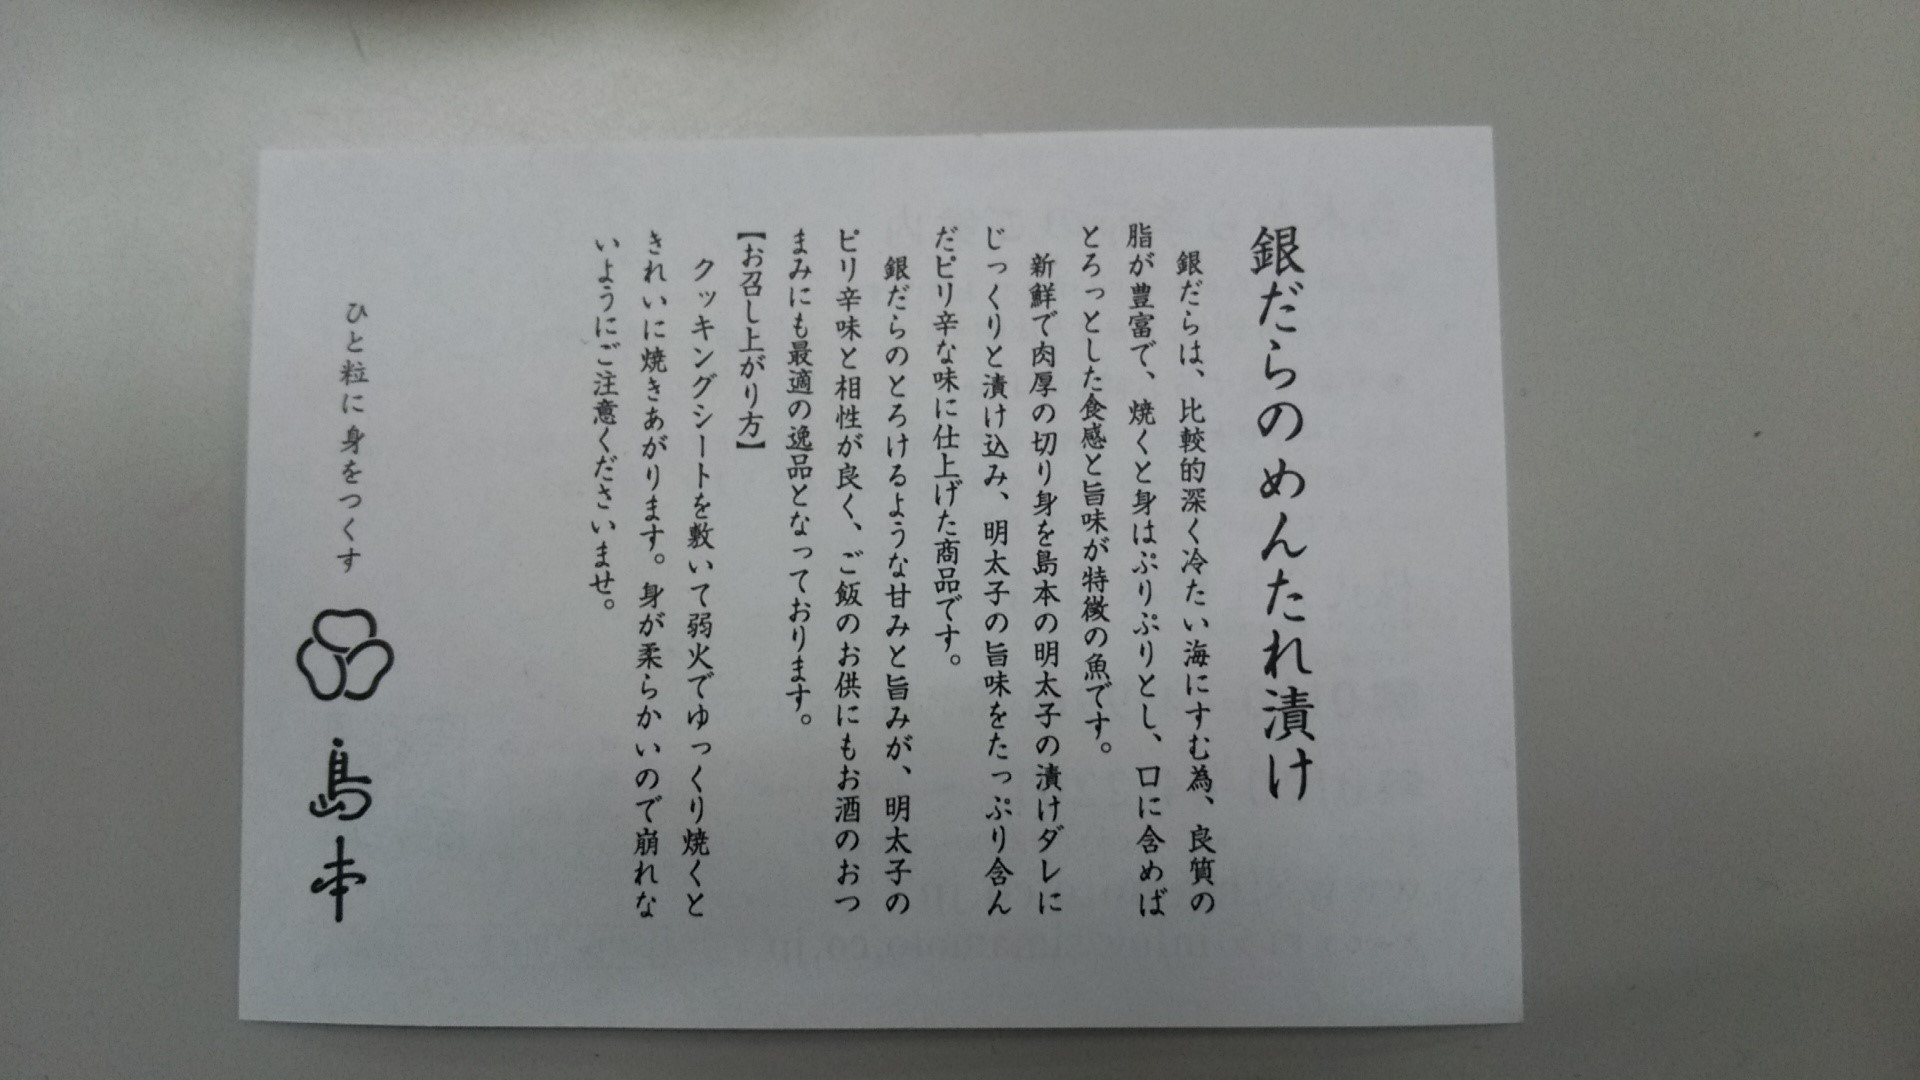 銀だらのめんたれ漬け
銀だらは、比較的深く冷たい海にすむ為、良質の
脂が豊富で、焼くと身はぷりぷりとし、口に含めば
とろっとした食感と旨味が特徴の魚です。
新鮮で肉厚の切り身を島本の明太子の漬けダレに
じっくりと漬け込み、明太子の旨味をたっぷり含ん
だピリ辛な味に仕上げた商品です。
銀だらのとろけるような甘みと旨みが、明太子の
ピリ辛味と相性が良く、ご飯のお供にもお酒のおつ
まみにも最適の逸品となっております。
【お召し上がり方】
クッキングシートを敷いて弱火でゆっくり焼くと
きれいに焼きあがります。身が柔らかいので崩れな
いようにご注意くださいませ。
ひと粒に身をつくす
島本